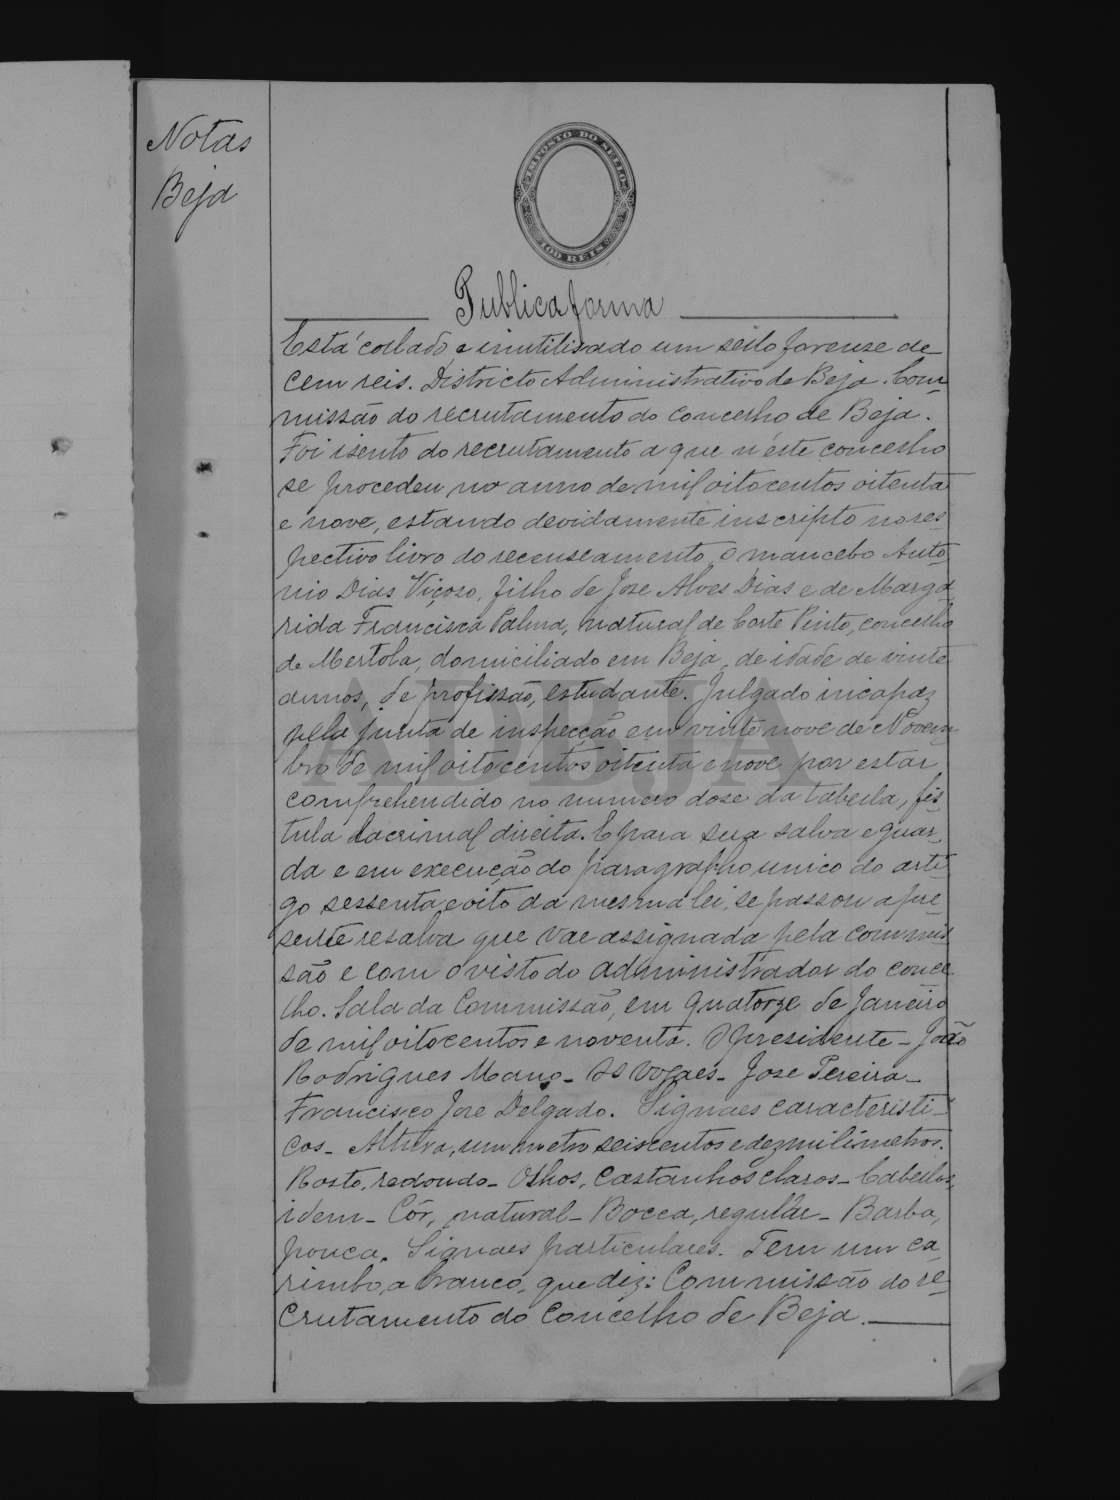 Notas
Beja
IMPOSTO DO SELLO
100 REIS
Publica forma
Está collado e inutilisado um sello forense de
cem reis. Districto Administrativo de Beja. Com-
missão do recrutamento do concelho de Beja.
Foi isento do recrutamento a que n'este concelho
se procedeu no anno de mil oitocentos oitenta
e nove, estando devidamente inscripto no res-
pectivo livro do recenseamento, o mancebo Anto-
nio Dias Viçoso, filho de Jose Alves Dias e de Marga-
rida Francisca Palma, natural de Corte Pinto, concelho
de Mertola, domiciliado em Beja, de idade de vinte
annos, de profissão, estudante. Julgado incapaz
pela junta de inspecção em vinte nove de Novem-
bro de mil oitocentos oitenta e nove por estar
comprehendido no numero dose da tabella, fis-
tula lacrimal direita. E para sua salva e guar-
da e em execução do paragrapho unico do arti-
go sessenta e oito da mesma lei, se passou a pre-
sente resalva que vae assignada pela commis-
são e com o visto do administrador do conce-
lho. Sala da Commissão, em quatorze de Janeiro
de mil oitocentos e noventa. O presidente - João
Rodrigues Mano - Os vogaes - Jose Pereira -
Francisco Jose Delgado. Signaes caracteristi-
cos - Altura, um metro seiscentos e dez milimetros.
Rosto, redondo - Olhos, castanhos claros - Cabellos,
idem - Côr, natural - Bocca, regular - Barba,
pouca. Signaes particulares. Tem um ca-
rimbo, a branco, que diz: Commissão do re-
crutamento do Concelho de Beja.
ADBJA